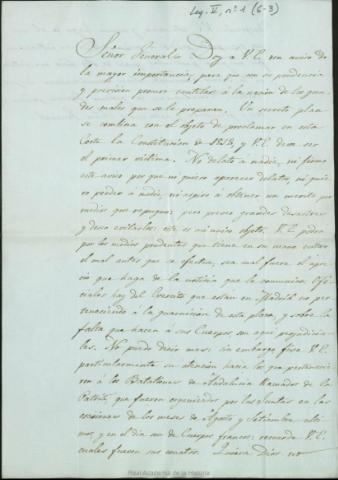 Leg. V, nº 1 (6-3)
Señor General: Doy a V.E. un aviso de
la mayor importancia, para que con su prudencia
y prevision procure evitarles á la nacion de los gran
des males que se le preparan. Un secreto plan
se combina con el objeto de proclamar en esta
Corte la Constitucion de 1812, y V.E. debe ser
el primer victima. No delato a nadie, ni firmo
este aviso por que ni quiero aparecer delator, ni quie
ro perder á nadie, ni aspiro á obtener un merito por
medios que repugno; pero preveo grandes desastres
y deseo evitarlos; este es mi unico objeto. V.E. podra
por los medios prudentes que tiene en su mano cortar
el mal antes que se efectue, sea cual fuere el apre
cio que haga de la noticia que le comunico. Ofi
ciales hay del Egercito que estan en Madrid no per
teneciendo á la guarnicion de esta plaza, y sobre la
falta que hacen á sus Cuerpos son aqui perjudicia
les. No puedo decir mas: sin embargo fixe V.E.
particularmente su atencion hacia los que pertenecie
ron á los Batallones de Andalucia llamados de la
Patria, que fueron organizados por las Juntas en las
asonadas de los meses de Agosto y Setiembre ulti
mos, y en el dia son de Cuerpos francos; recuerde V.E.
cuales fueron sus conatos. Quiera Dios no
Real Academia de la Historia